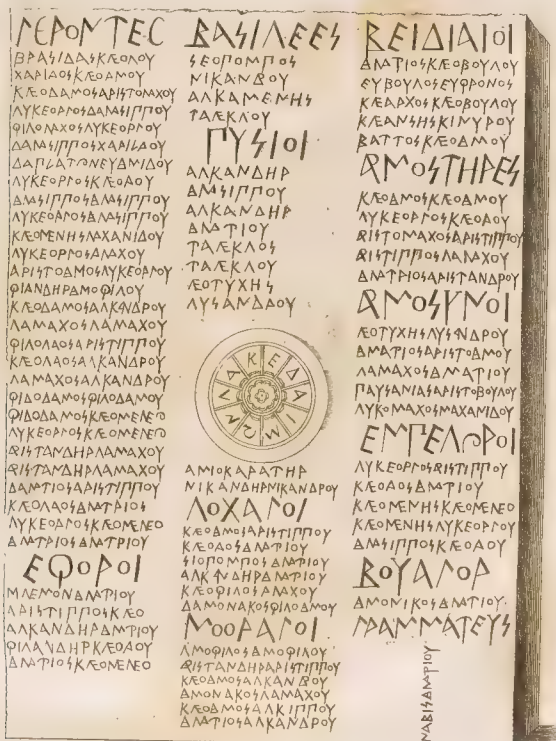 ΓΕΡΟΝΤΕΣ
ΒΡΑΣΙΔΑΣΚΛΕΟΛΟΥ
ΧΑΡΙΛΟΣΚΛΕΟΔΜΟΥ
ΚΛΕΟΔΑΜΟΣΑΡΙΣΤΟΜΑΧΟΥ
ΛΥΚΕΟΡΓΟΣΔΑΜΣΙΠΠΟΥ
ΦΙΛΟΜΑΧΟΣΛΥΚΕΟΡΓΟΥ
ΔΑΜΣΙΠΠΟΣΧΑΡΙΛΔΟΥ
ΛΥΚΕΟΡΓΟΣΚΛΕΟΛΟΥ
ΔΜΣΙΠΠΟΣΔΜΣΙΠΠΟΥ
ΛΥΚΕΟΡΓΟΣΔΜΣΙΠΠΟΥ
ΚΛΕΟΜΕΝΗΣΜΑΧΑΝΙΔΟΥ
ΛΥΚΕΟΡΓΟΣΛΜΑΧΟΥ
ΑΡΙΣΤΟΔΑΜΟΣΛΥΚΕΟΡΓΟΥ
ΦΙΑΝΔΗΡΔΑΜΟΦΙΛΟΥ
ΚΛΕΟΔΑΜΟΣΑΛΚΑΝΔΡΟΥ
ΛΑΜΑΧΟΣΛΑΜΑΧΟΥ
ΦΙΛΟΛΑΟΣΑΡΙΣΤΙΠΠΟΥ
ΚΛΕΟΛΑΟΣΑΛΚΑΝΔΡΟΥ
ΛΑΜΑΧΟΣΑΛΚΑΝΔΡΟΥ
ΦΙΔΟΔΑΜΟΣΦΙΛΟΔΑΜΟΥ
ΦΙΔΟΔΑΜΟΣΚΛΕΟΜΕΝΕΩ
ΛΥΚΕΟΡΓΟΣΚΛΕΟΜΕΝΕΩ
ΑΡΙΣΤΑΝΔΗΡΛΑΜΑΧΟΥ
ΑΡΙΣΤΑΝΔΗΡΛΑΜΑΧΟΥ
ΔΑΜΤΙΟΣΑΡΙΣΤΙΠΠΟΥ
ΚΛΕΟΛΑΟΣΔΜΑΤΡΙΟΣ
ΛΥΚΕΟΡΓΟΣΚΛΕΟΜΕΝΕΟ
ΔΜΑΤΡΙΟΣΔΜΑΤΡΙΟΥ
ΕΦΟΡΟΙ
ΜΛΕΜΟΝΔΜΑΤΡΙΟΥ
ΑΡΙΣΤΙΠΠΟΣΚΛΕΟ
ΑΛΚΑΝΔΗΡΔΜΤΡΙΟΥ
ΦΙΛΑΝΔΗΡΚΛΕΟΛΟΥ
ΔΜΑΤΙΟΣΚΛΕΟΜΕΝΕΟ
ΒΑΣΙΛΕΕΣ
ΣΕΟΠΟΜΠΟΣ
ΝΙΚΑΝΔΡΟΥ
ΑΛΚΑΜΕΝΗΣ
ΤΑΛΕΚΛΟΥ
ΠΥΣΙΟΙ
ΑΛΚΑΝΔΗΡ
ΔΜΣΙΠΠΟΥ
ΑΛΚΑΝΔΗΡ
ΔΜΑΤΙΟΥ
ΤΑΛΕΚΛΟΣ
ΤΑΛΕΚΛΟΥ
ΛΕΟΤΥΧΗΣ
ΛΥΣΑΝΔΡΟΥ
ΛΑΚΕΔΑΙΜΩΝ
ΑΜΙΟΚΑΡΑΤΗΡ
ΝΙΚΑΝΔΗΡΝΙΚΑΝΔΡΟΥ
ΛΟΧΑΓΟΙ
ΚΛΕΟΔΜΟΣΑΡΙΣΤΙΠΠΟΥ
ΚΛΕΟΛΟΣΔΜΑΤΙΟΥ
ΣΙΟΠΟΜΠΟΣΔΜΑΤΙΟΥ
ΑΛΚΑΝΔΗΡΔΑΜΤΙΟΥ
ΚΛΕΟΦΙΛΟΣΛΜΑΧΟΥ
ΔΑΜΟΝΑΚΟΣΦΙΛΟΔΜΟΥ
ΜΟΟΡΑΓΟΙ
ΔΜΟΦΙΛΟΣΔΜΟΦΙΛΟΥ
ΑΡΙΣΤΑΝΔΗΡΑΡΙΣΤΙΠΠΟΥ
ΚΛΕΟΔΜΟΣΑΛΚΑΝΔΡΟΥ
ΔΜΟΝΑΚΟΣΛΑΜΑΧΟΥ
ΚΛΕΟΔΜΟΣΑΛΚΙΠΠΟΥ
ΔΜΑΤΙΟΣΑΛΚΑΝΔΡΟΥ
ΒΕΙΔΙΑΙΟΙ
ΔΜΑΤΙΟΣΚΛΕΟΒΟΥΛΟΥ
ΕΥΒΟΥΛΟΣΕΥΦΡΟΝΟΣ
ΚΛΕΑΡΧΟΣΚΛΕΟΒΟΥΛΟΥ
ΚΛΕΑΝΣΗΣΚΙΝΥΡΟΥ
ΒΑΤΤΟΣΚΛΕΟΔΜΟΥ
ΑΡΜΟΣΤΗΡΕΣ
ΚΛΕΟΔΜΟΣΚΛΕΟΔΜΟΥ
ΛΥΚΕΟΡΓΟΣΚΛΕΟΛΟΥ
ΑΡΙΣΤΟΜΑΧΟΣΑΡΙΣΤΙΠΠΟΥ
ΑΡΙΣΤΙΠΠΟΣΛΑΜΑΧΟΥ
ΔΜΑΤΡΙΟΣΑΡΙΣΤΑΝΔΡΟΥ
ΑΡΜΟΣΥΝΟΙ
ΛΕΟΤΥΧΗΣΛΥΣΑΝΔΡΟΥ
ΔΜΑΤΙΟΣΑΡΙΣΤΟΔΑΜΟΥ
ΛΑΜΑΧΟΣΔΜΑΤΙΟΥ
ΠΑΥΣΑΝΙΑΣΑΡΙΣΤΟΒΟΥΛΟΥ
ΛΥΚΟΜΑΧΟΣΜΑΧΑΝΙΔΟΥ
ΕΜΠΕΛΩΡΟΙ
ΛΥΚΕΟΡΓΟΣΑΡΙΣΤΙΠΠΟΥ
ΚΛΕΟΛΟΣΔΜΑΤΡΙΟΥ
ΚΛΕΟΜΕΝΗΣΚΛΕΟΜΕΝΕΟ
ΚΛΕΟΜΕΝΗΣΛΥΚΕΟΡΓΟΥ
ΔΜΣΙΠΠΟΣΚΛΕΟΛΟΥ
ΒΟΥΑΓΟΡ
ΔΜΟΝΙΚΟΣΔΜΑΤΙΟΥ
ΓΡΑΜΜΑΤΕΥΣ
ΝΑΒΙΣΔΜΑΤΡΙΟΥ